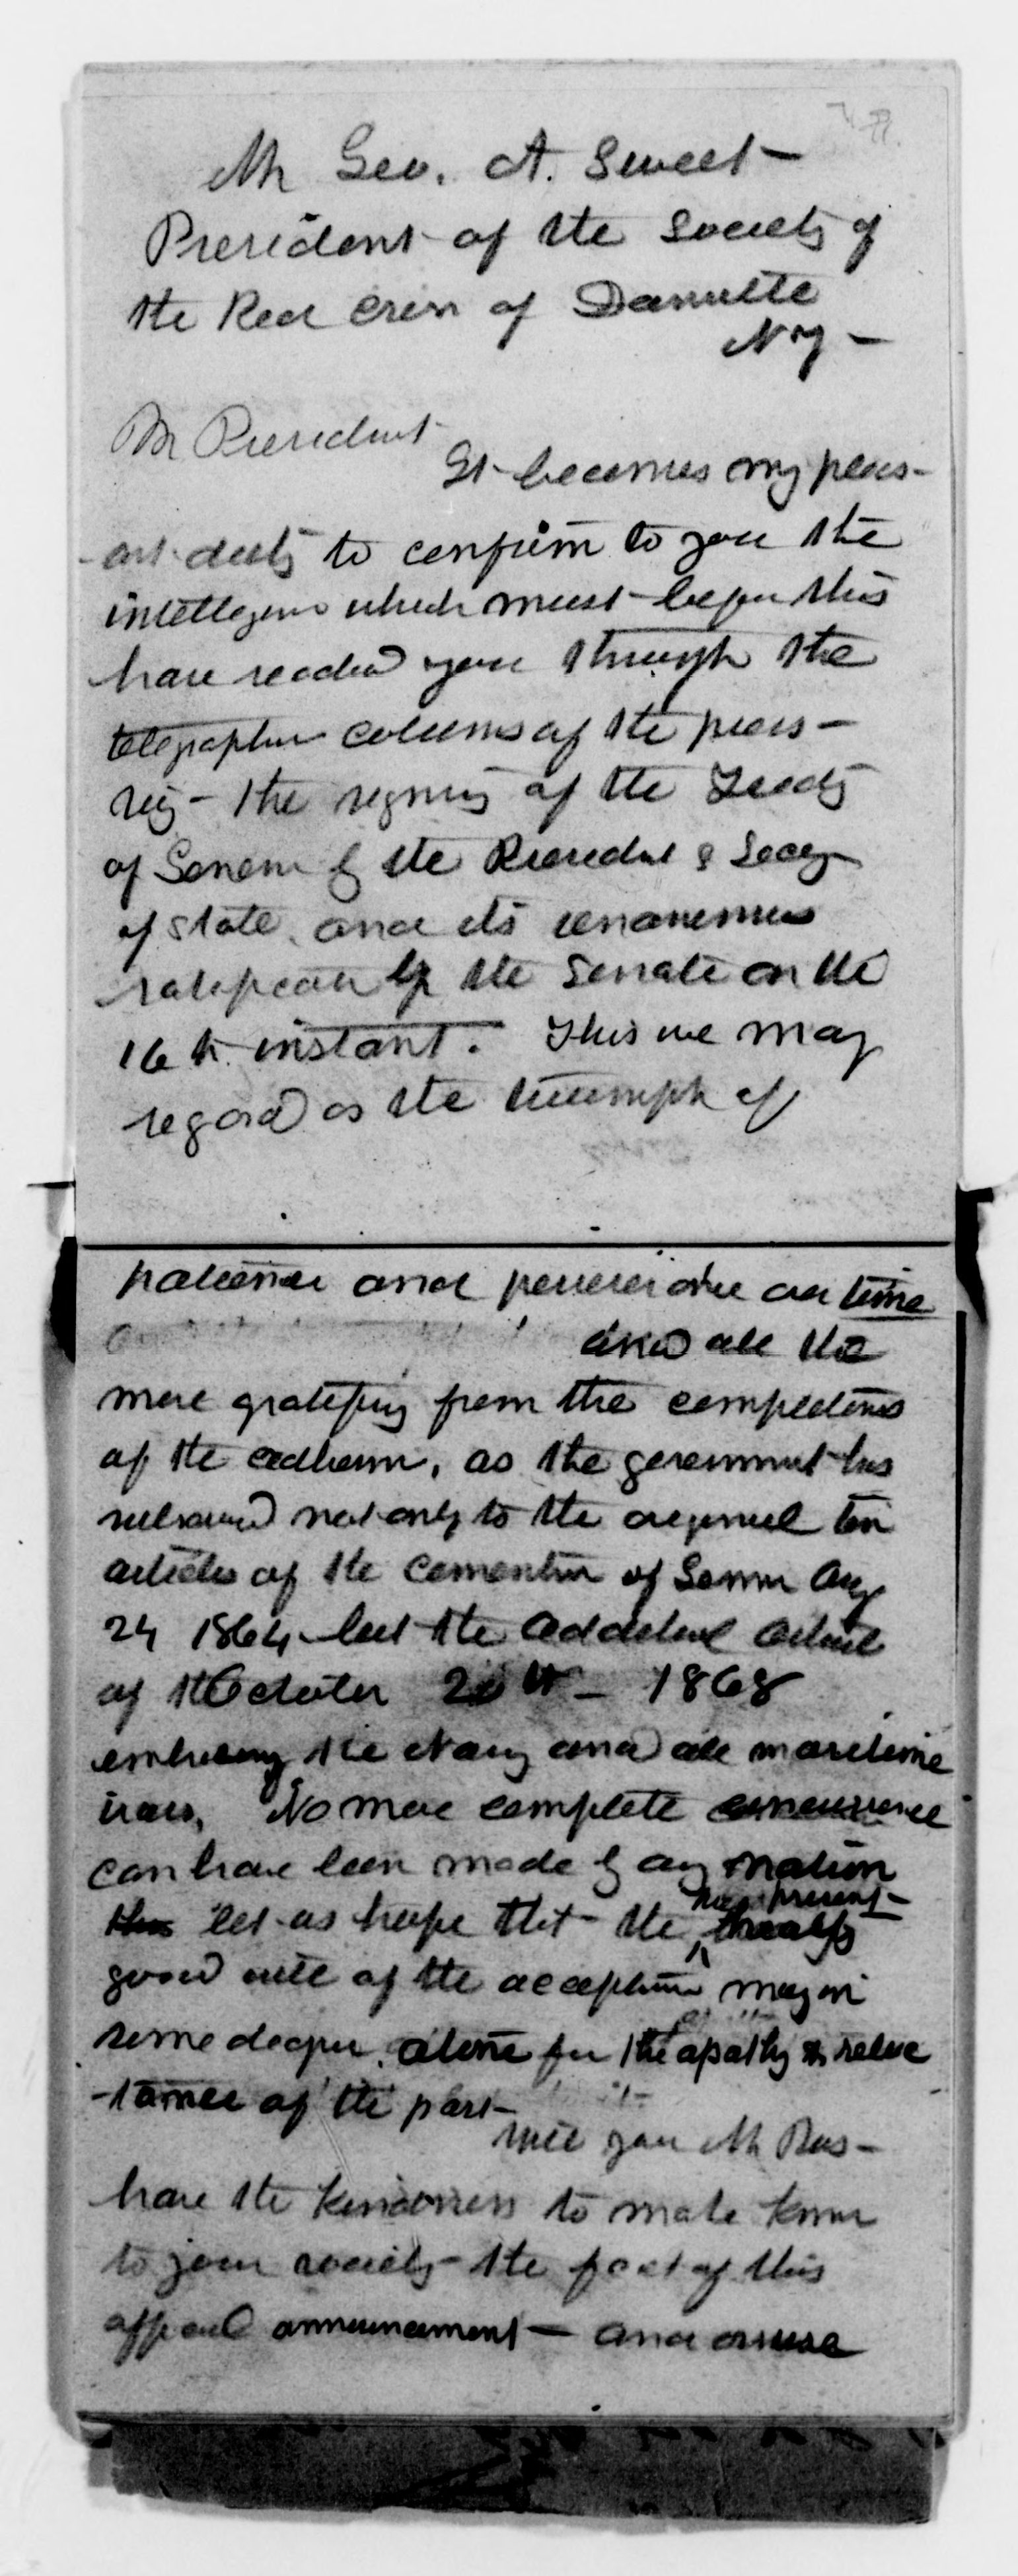 Mr Geo. A. Sweet —
President of the Society of
the Red Cross of Dansville
N Y —
Mr President
It becomes my pleas-
-ant duty to confirm to you the
intelligence which must before this
have reached you through the
telegraphic columns of the press —
viz — the signing of the Treaty
of Geneva by the President & Secy
of State, and its unanimous
ratification by the Senate on the
16th instant. This we may
regard as the triumph of
patience and perseverance over time
and all the
more gratifying from the completeness
of the adhesion, as the government has
subscribed not only to the original ten
articles of the Convention of Geneva Aug
24 1864 but the additional articles
of October 20th — 1868
embracing the Navy and all maritime
wars, No more complete concurrence
can have been made by any nation
let us hope that the present
good will of the acceptance may in
some degree, atone for the apathy & reluc
-tance of the past —
Will you Mr Pres —
have the kindness to make known
to your society the fact of this
official announcement — and